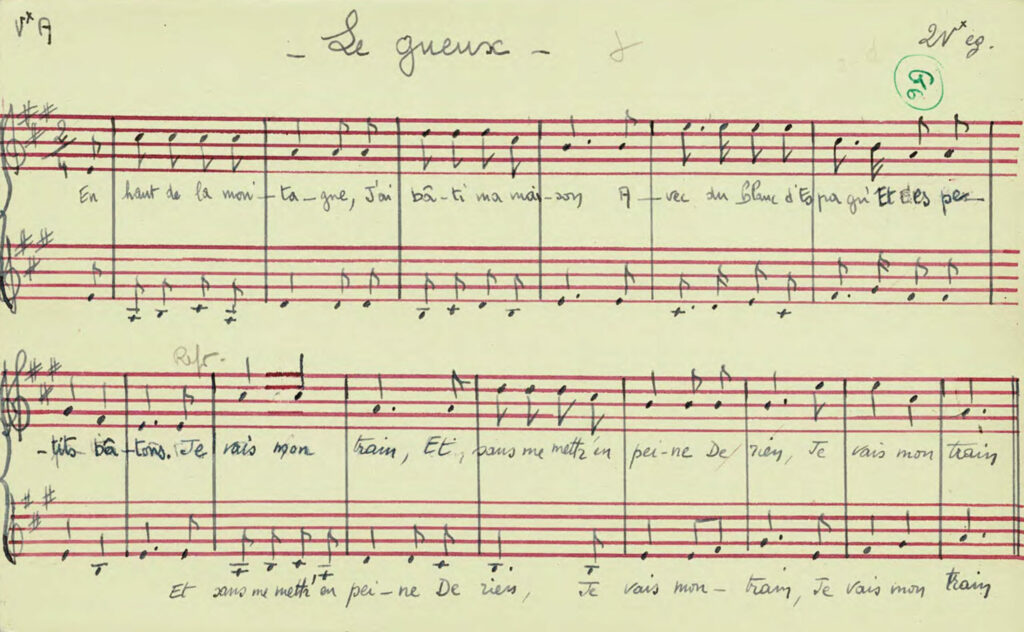 Vx A
- Le gueux -
2Vx eg.
2/4
En haut de la mon - ta - gne, J'ai bâ - ti ma mai - son A - vec du blanc d'Espagn' Et des pe -
Ref.
- tits bâ - tons. Je vais mon train, Et, sans me mettr' en pei - ne De rien, Je vais mon train
Et sans me mettr' en pei - ne De rien, Je vais mon - train, Je vais mon train